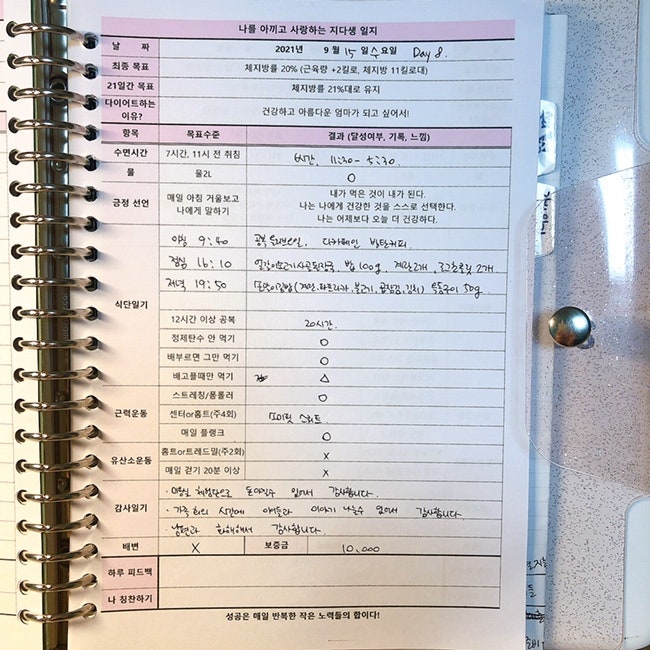 나를 아끼고 사랑하는 지다생 일지
날 짜 2021년 9월 15일 수요일 Day 8.
최종 목표 체지방률 20% (근육량 +2킬로, 체지방 11킬로대)
21일간 목표 체지방률 21%대로 유지
다이어트하는 이유? 건강하고 아름다운 엄마가 되고 싶어서!
항목 목표수준 결과 (달성여부, 기록, 느낌)
수면시간 7시간, 11시 전 취침 6시간. 11:30 - 5:30
물 물2L O
긍정 선언 매일 아침 거울보고 나에게 말하기
내가 먹은 것이 내가 된다.
나는 나에게 건강한 것을 스스로 선택한다.
나는 어제보다 오늘 더 건강하다.
식단일기
아침 9:40 공복 올리브오일, 디카페인 방탄커피.
점심 16:10 밥 100g, 계란 2개, 2개
저녁 19:50 (계란, 불고기, 김치) 50g.
12시간 이상 공복 20시간.
정제탄수 안 먹기 O
배부르면 그만 먹기 O
배고플때만 먹기 △
근력운동
스트레칭/폼롤러 O
센터or홈트(주4회) 스쿼트.
매일 플랭크 O
유산소운동
홈트or트레드밀(주2회) X
매일 걷기 20분 이상 X
감사일기
· 미용실 체험단으로 있어서 감사합니다.
· 가족회의 시간에 아이들과 이야기 나눌수 있어서 감사합니다.
남편과 화해해서 감사합니다.
배변 X 보증금 10,000
하루 피드백
나 칭찬하기
성공은 매일 반복한 작은 노력들의 합이다!